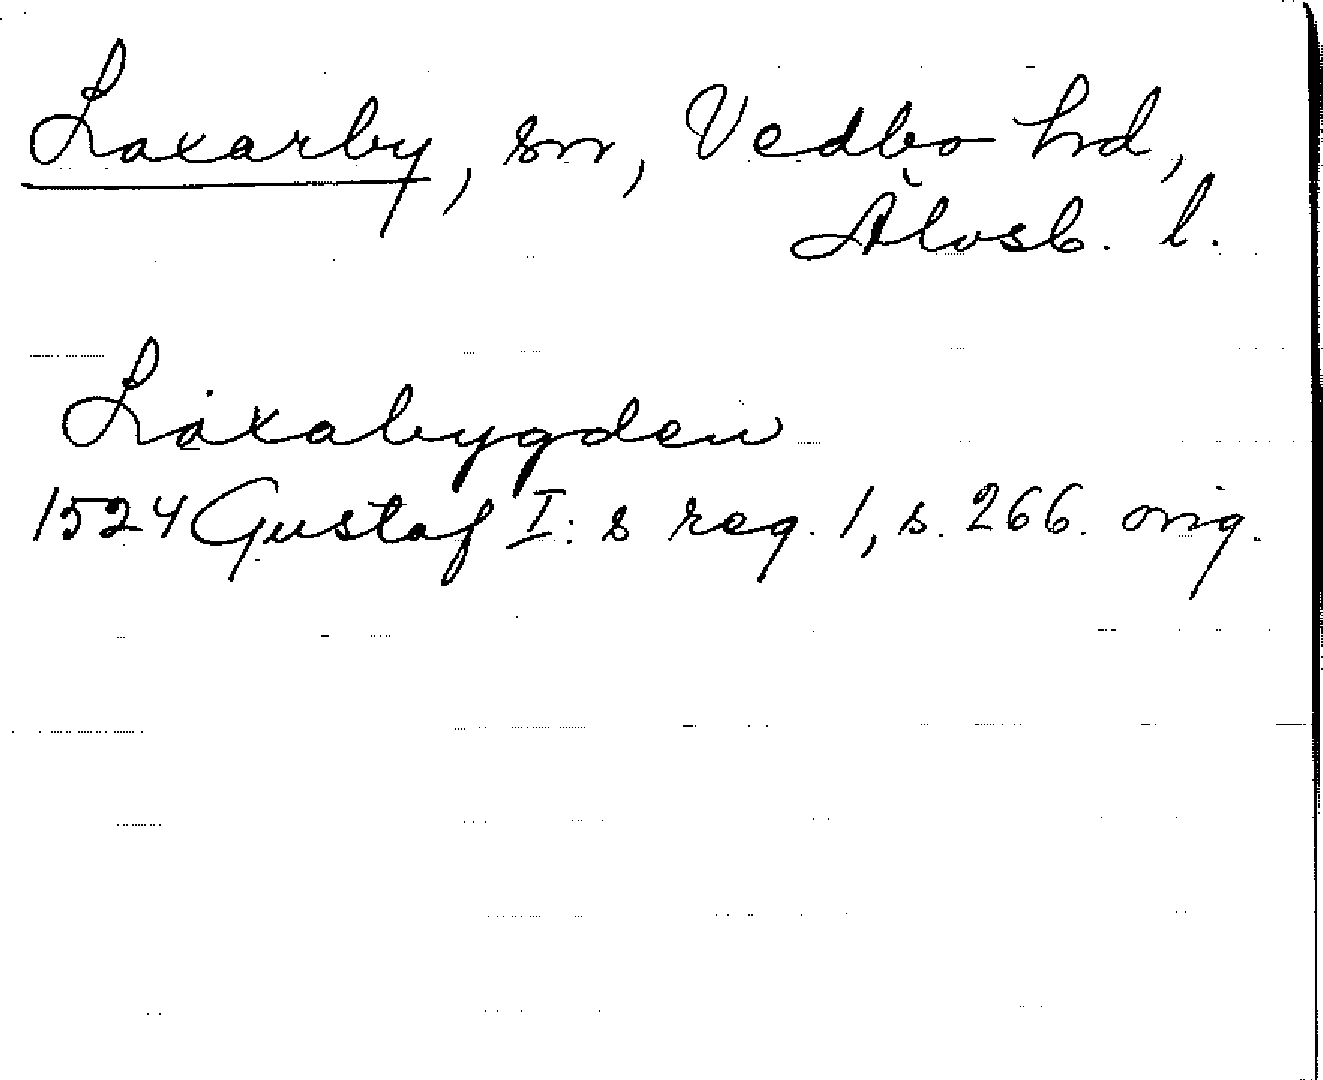 Laxarby, sn, Vedbo hd,
Älvsb. l.
Laxabygden
1524 Gustaf I:s reg. 1, s. 266. orig.